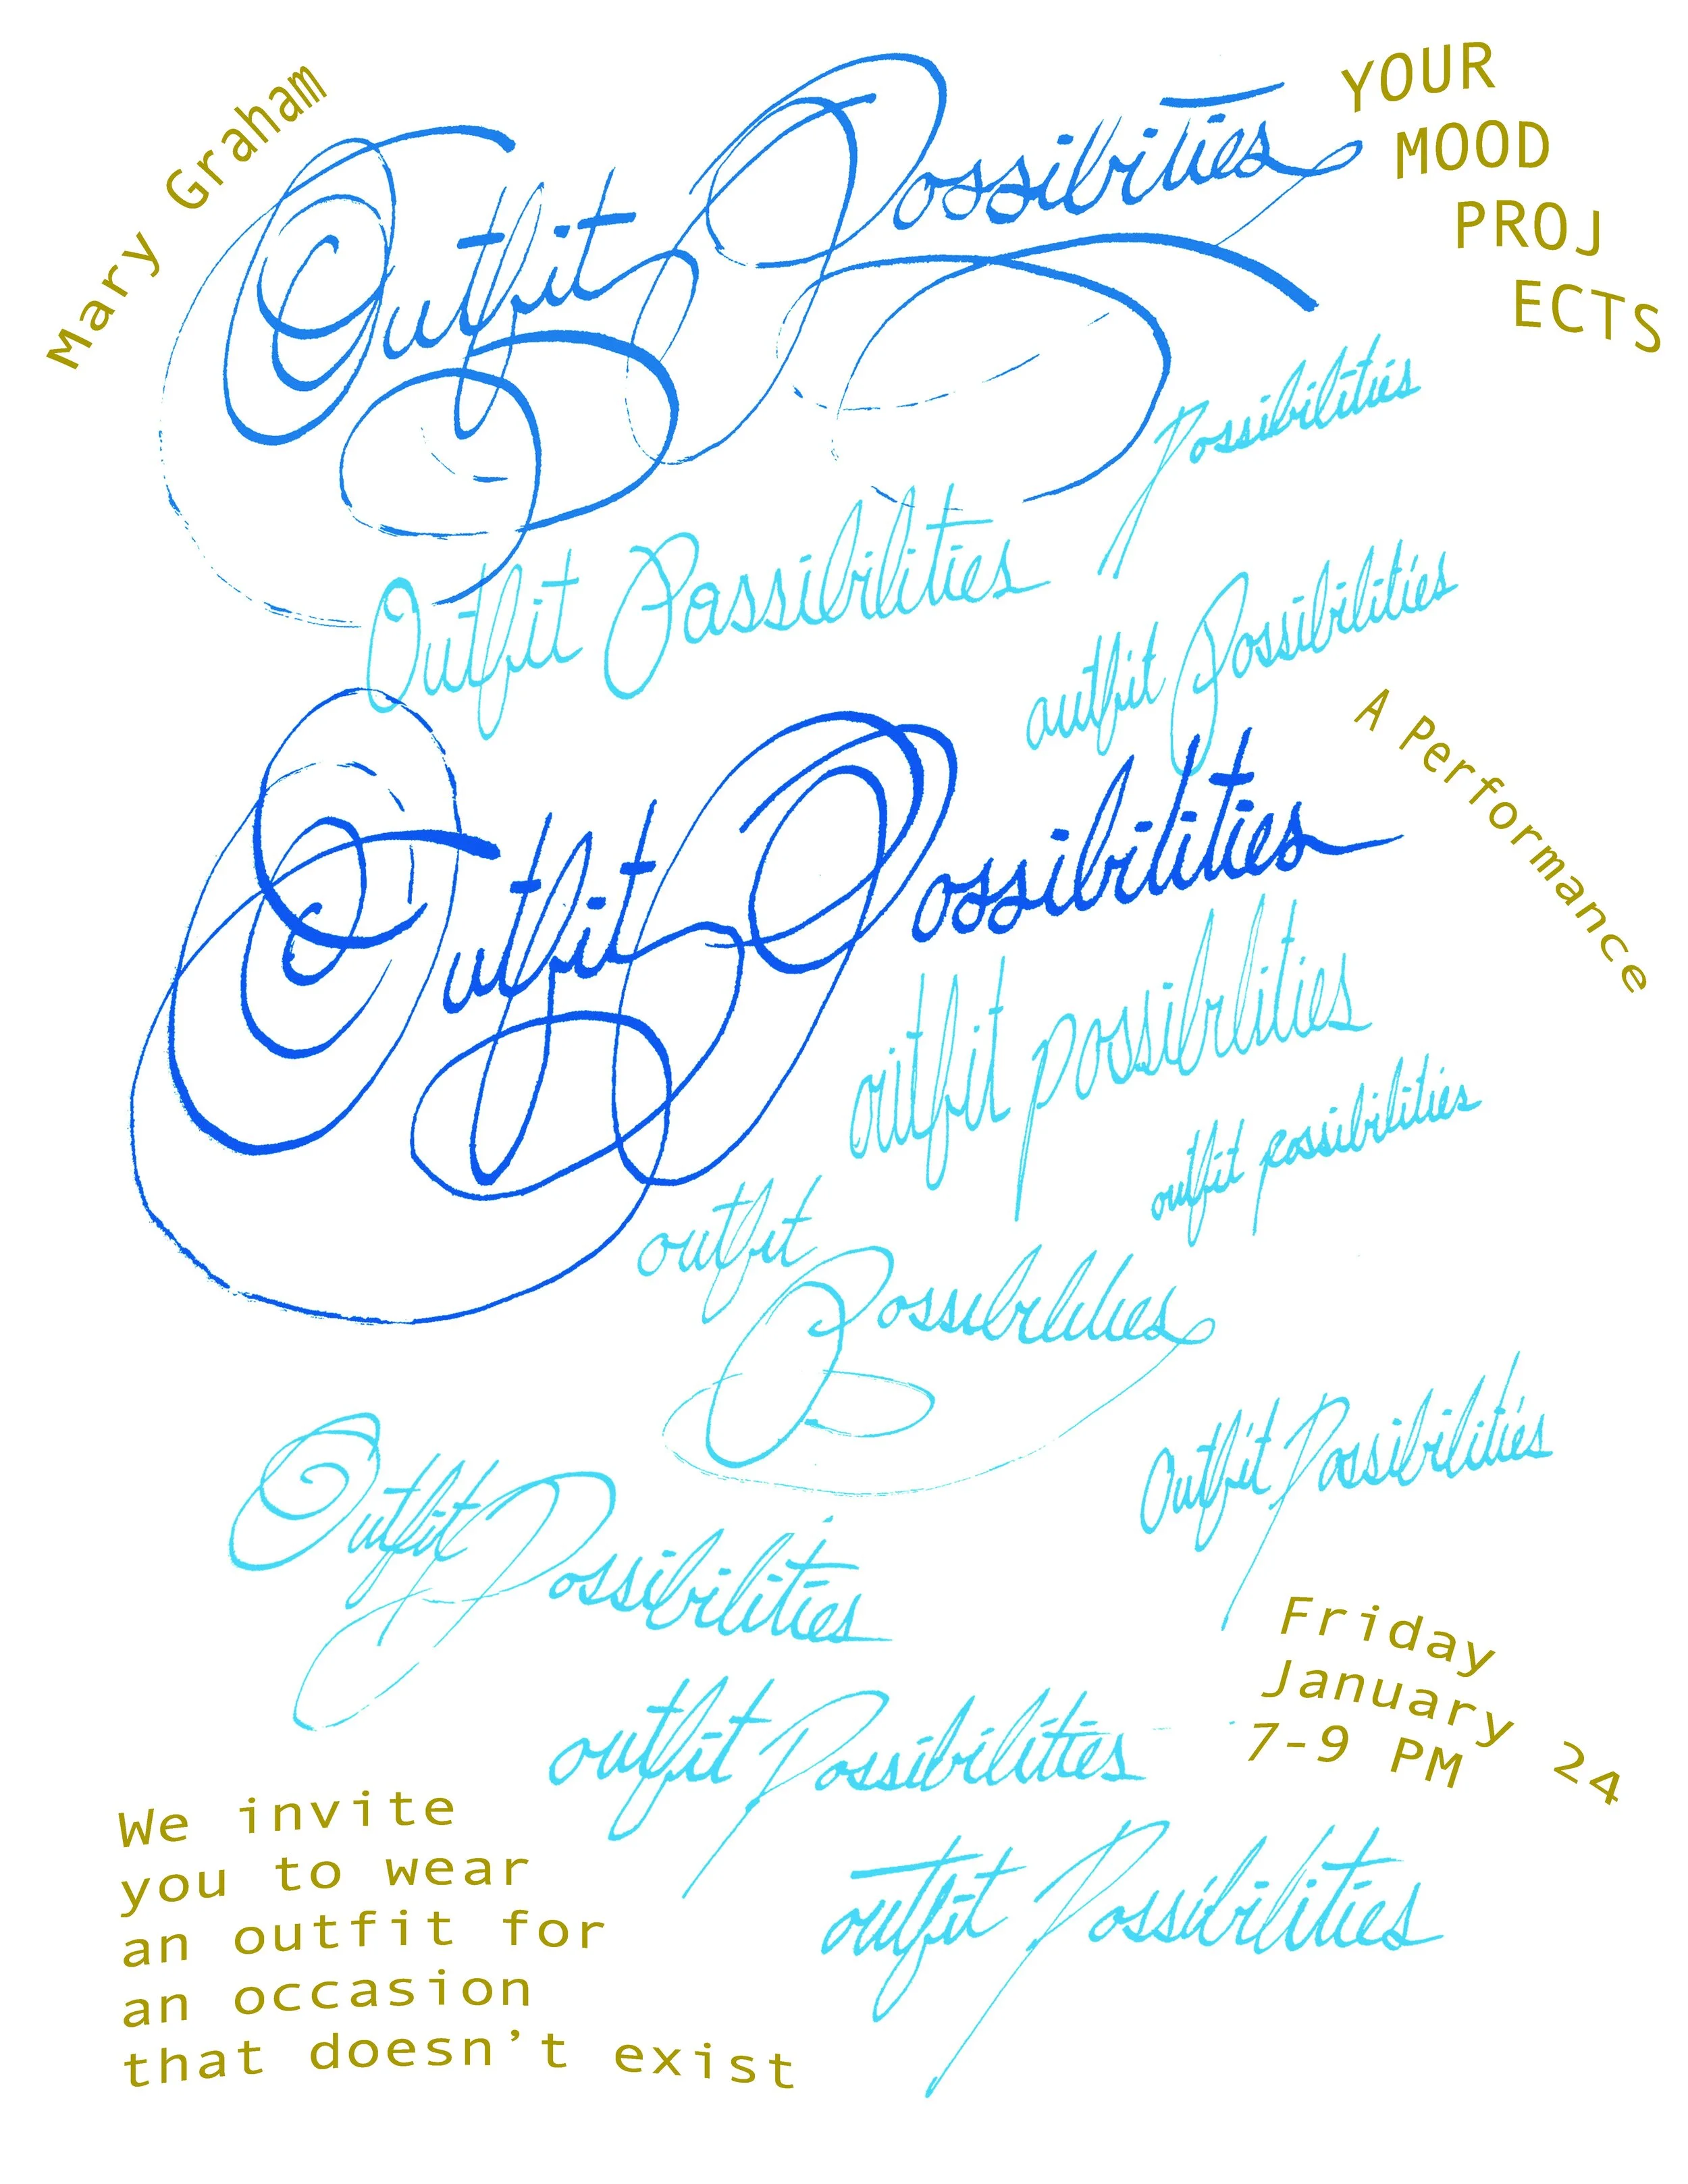 Mary Graham
Outfit Possibilities
YOUR
MOOD
PROJ
ECTS
Possibilities
Outfit Possibilities
outfit Possibilities
A Performance
Outfit Possibilities
outfit possibilities
outfit possibilities
outfit
Possibilities
Outfit Possibilities
Outfit
Possibilities
outfit Possibilities
outfit Possibilities
Friday
January 24
7-9 PM
We invite
you to wear
an outfit for
an occasion
that doesn’t exist